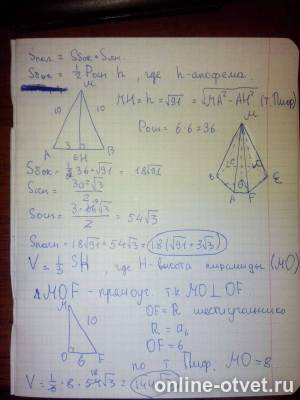 Sпол = Sбок + Sосн
Sбок = 1/2 Pосн h, где h-апофема
M
10 10
MH = h = √91 = √MA² - AH² (т. Пиф)
A 3 6H B
Pосн = 6·6 = 36
M
B A F E
Sбок = 1/2 36·√91 = 18√91
Sосн = 3a²√3/2
Sосн = 3·6²√3/2 = 54√3
Sполн = 18√91 + 54√3 = 18(√91 + 3√3)
V = 1/3 SH, где H-высота пирамиды (MO)
△MOF - прямоуг. т.к MO⊥OF
M
10
O 6 F
OF = R шестиугольника
R = a₆
OF = 6
по т Пиф. MO = 8
V = 1/3 · 8 · 54√3 = 144√3
online-otvet.ru